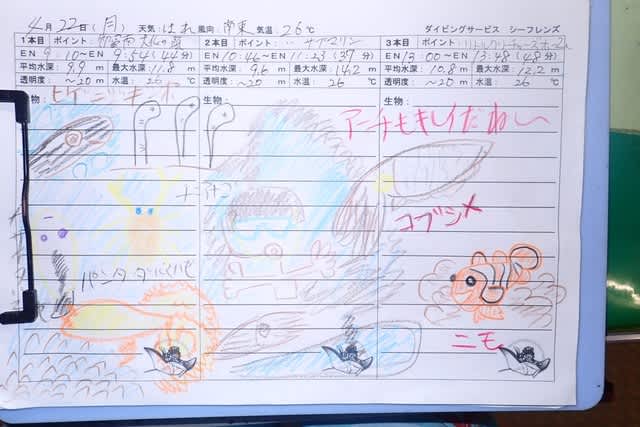 4月22日(月) 天気:はれ 風向:南東 気温:26℃ ダイビングサービス シーフレンズ
1本目 ポイント:
2本目 ポイント: サブマリン
3本目 ポイント:
EN 9:10～EN 9:54(44分)
EN 10:46～EN 11:23(37分)
EN 13:00～EN 13:48(48分)
平均水深:9.9m 最大水深:11.8m
平均水深:9.6m 最大水深:14.2m
平均水深:10.8m 最大水深:12.2m
透明度:～20m 水温:26℃
透明度:～20m 水温:26℃
透明度:～20m 水温:26℃
生物:
生物:
生物:
アーチもキレイだねー
コブシメ
パンダダルマハゼ
ニモ